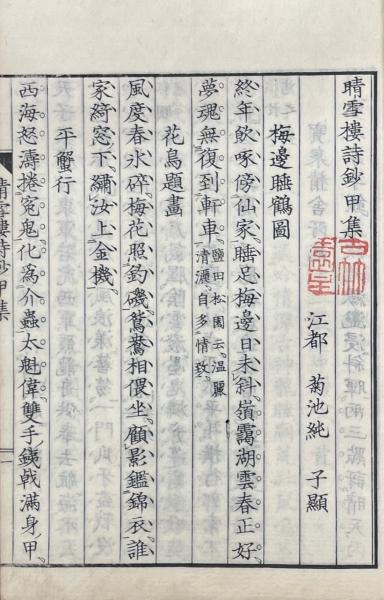 晴雪樓詩鈔甲集
江都　菊池純　子顯
梅邊睡鶴圖
終年飲啄傍仙家睡足梅邊日未斜嶺靄湖雲春正好
夢魂無復到軒車鹽田松園云溫麗清灑自多情致
花鳥題畫
風度春氷碎梅花照釣磯鴛鴦相偎坐顧影鑑錦衣誰
家綺窓下繡汝上金機
平蟹行
西海怒濤捲冤鬼化為介蟲太魁偉雙手鋏戟滿身甲
晴雪樓詩鈔甲集
一